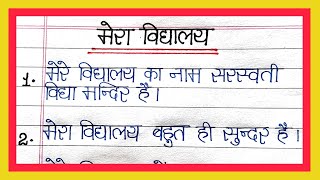 मेरा विद्यालय
1. मेरे विद्यालय का नाम सरस्वती
विद्या मन्दिर है।
2. मेरा विद्यालय बहुत ही सुन्दर है।